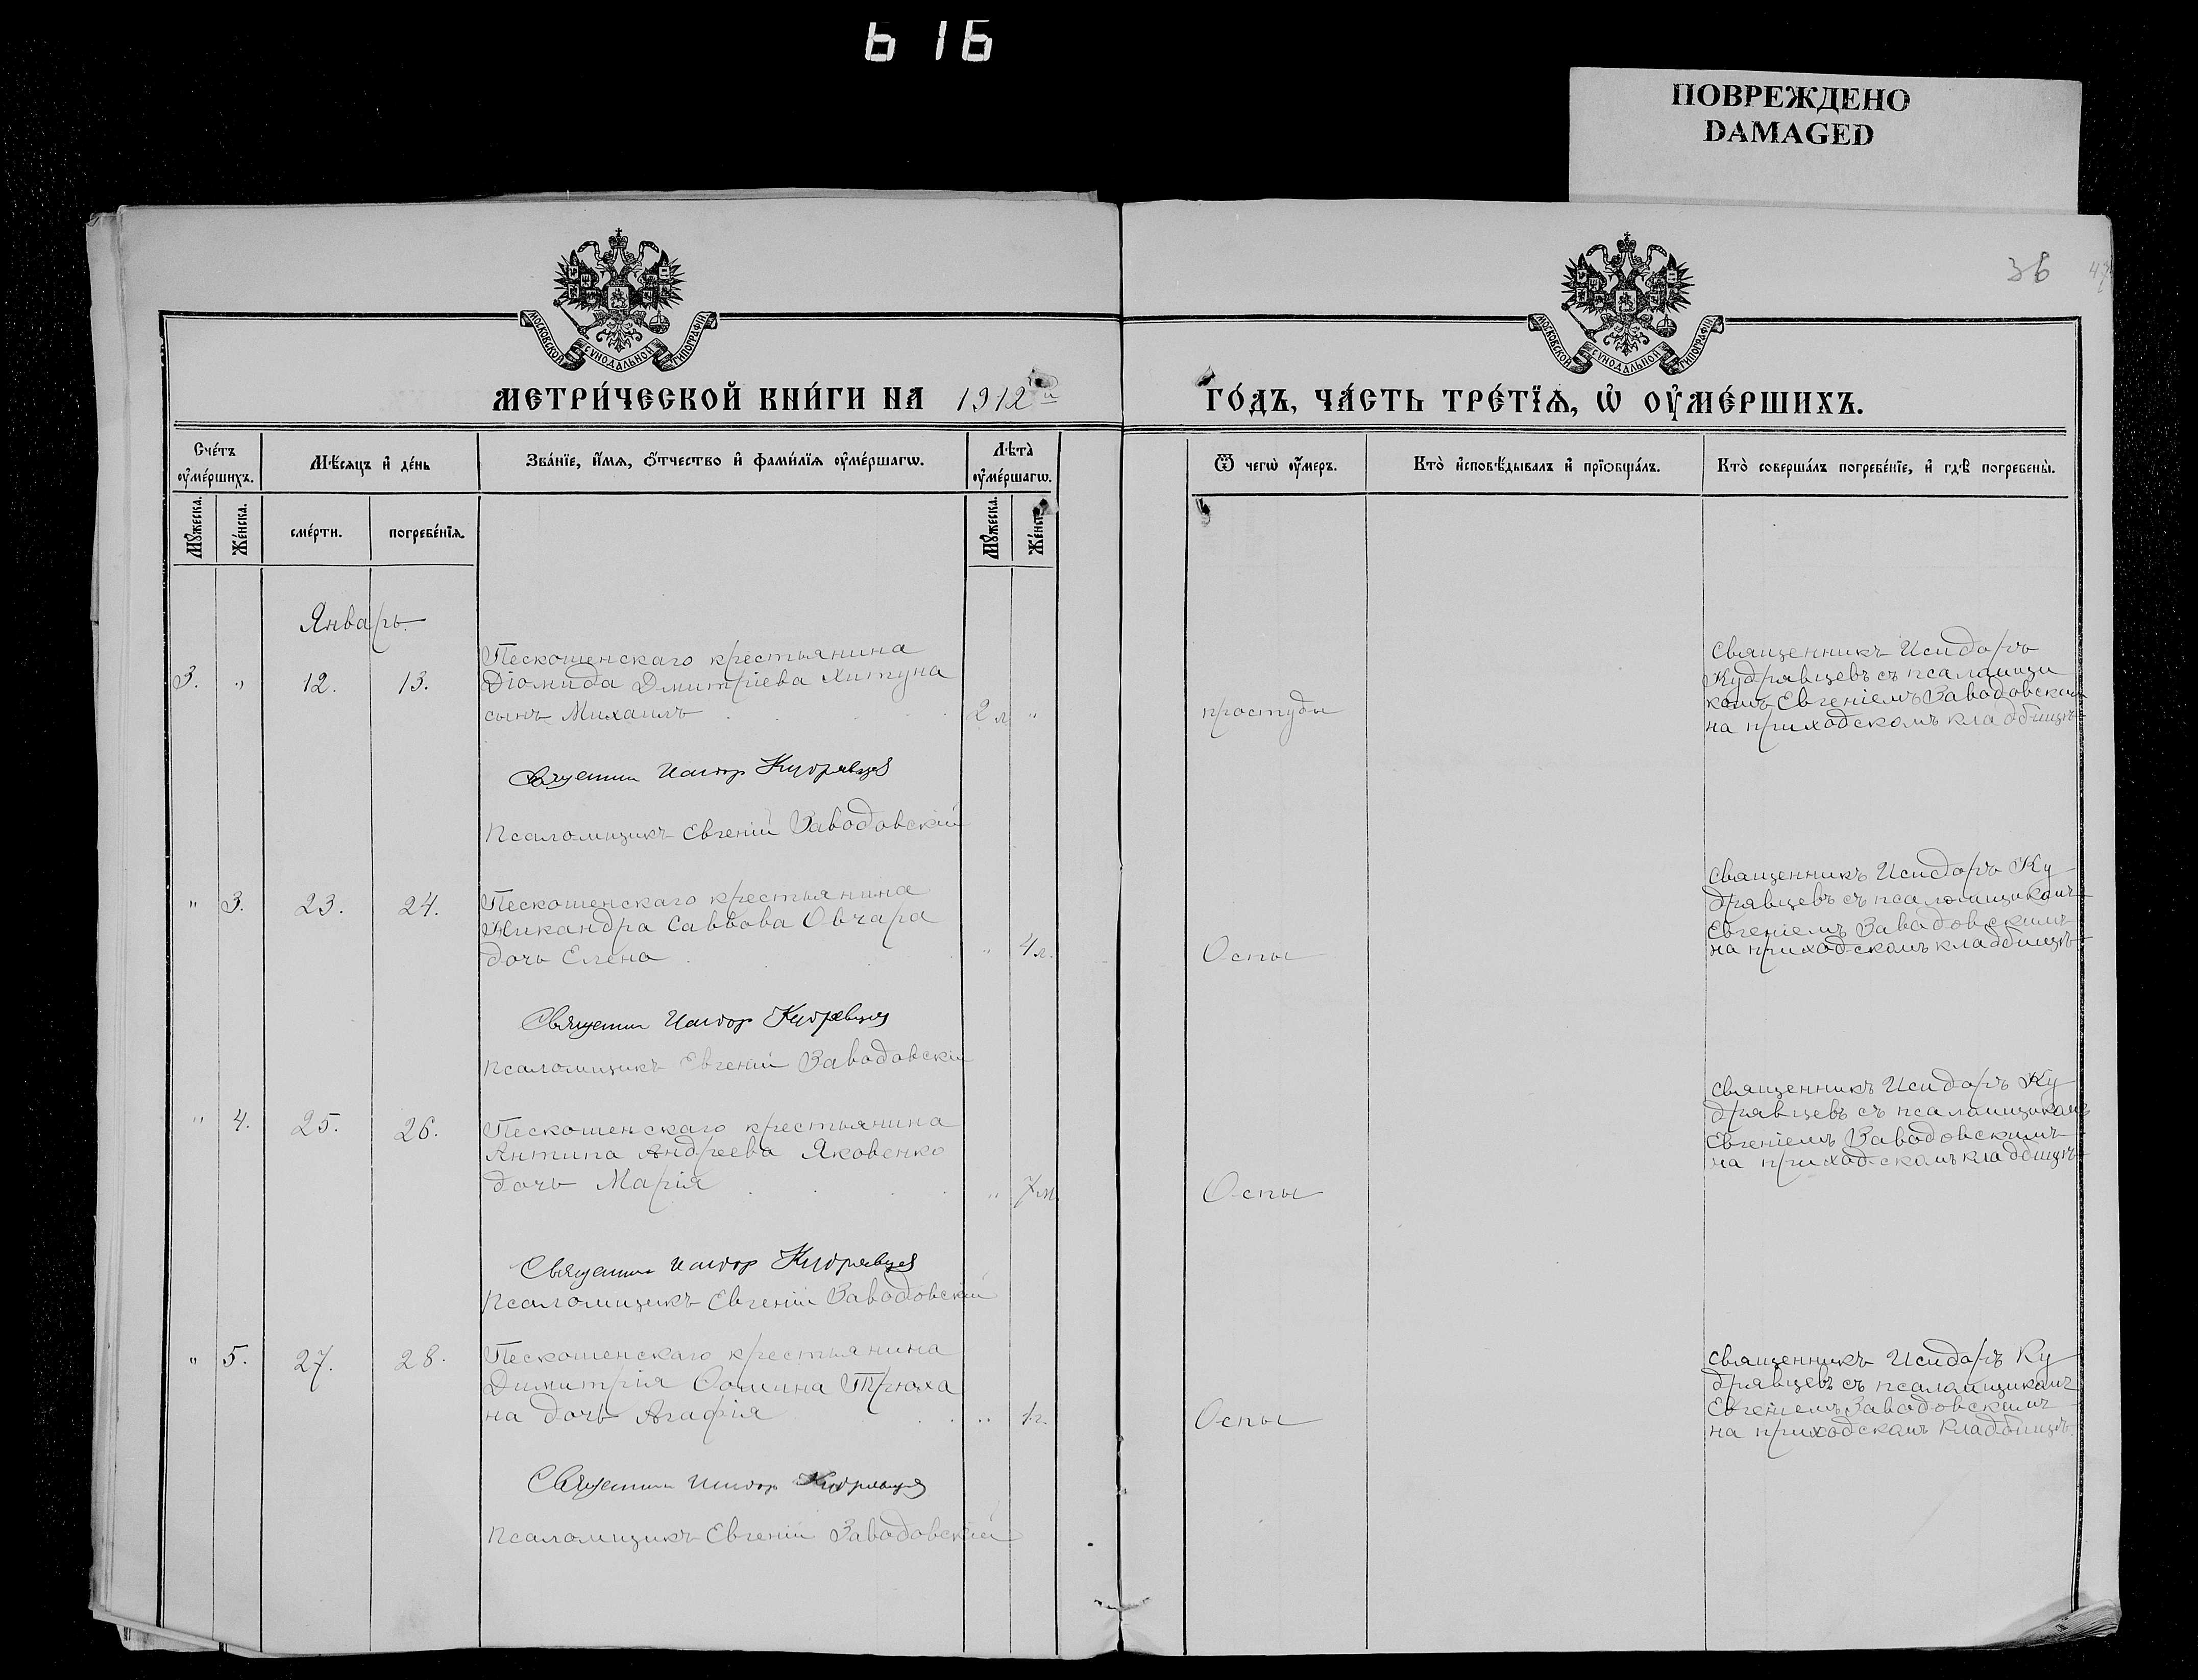 616
ПОВРЕЖДЕНО
DAMAGED
36
МОСКОВСКОЙ СѴНОДАЛЬНОЙ ТИПОГРАФІИ
МОСКОВСКОЙ СѴНОДАЛЬНОЙ ТИПОГРАФІИ
МЕТРИ́ЧЕСКОЙ КНИ́ГИ НА 1912й ГО́ДЪ, ЧА́СТЬ ТРЕ́ТЇѦ, Ѡ҆ ОУ҆МЕ́РШИХЪ.
Сче́тъ оу҆ме́ршихъ.
Мѣ́сѧцъ и҆ де́нь
Зва́нїе, и҆́мѧ, ѻ҆́тчество и҆ фами́лїѧ оу҆ме́ршагѡ.
Лѣ́та оу҆ме́ршагѡ.
Ѿ чегѡ̀ оу҆́меръ.
Кто̀ и҆сповѣ́дывалъ и҆ прїѻбща́лъ.
Кто̀ соверша́лъ погребе́нїе, и҆ гдѣ̀ погребены̀.
Мꙋ́жеска.
Же́нска.
сме́рти.
погребе́нїѧ.
Мꙋ́жеска.
Же́нск
Январь.
3. „ 12. 13.
Пескошенскаго крестьянина
Діомида Дмитріева Хитуна
сынъ Михаилъ 2 л „
простуды
Священникъ Исидоръ
Кудрявцевъ съ псаломщи
комъ Евгеніемъ Заводовскимъ
на приходскомъ кладбищѣ
Священник Исидор Кудрявцев
Псаломщикъ Евгеній Заводовскій
„ 3. 23. 24.
Пескошенскаго крестьянина
Никандра Саввова Овчара
дочь Елена „ 4 л.
Оспы
Священникъ Исидоръ Ку
дрявцевъ съ псаломщикомъ
Евгеніемъ Заводовскимъ
на приходскомъ кладбищѣ
Священник Исидор Кудрявцев
Псаломщикъ Евгеній Заводовскій
„ 4. 25. 26.
Пескошенскаго крестьянина
Антипа Андреева Яковенко
дочь Марія „ 7 м.
Оспы
Священникъ Исидоръ Ку
дрявцевъ съ псаломщикомъ
Евгеніемъ Заводовскимъ
на приходскомъ кладбищѣ
Священник Исидор Кудрявцев
Псаломщикъ Евгеній Заводовскій
„ 5. 27. 28.
Пескошенскаго крестьянина
Димитрія Ѳомина Трюха
на дочь Агафія „ 1 г.
Оспы
Священникъ Исидоръ Ку
дрявцевъ съ псаломщикомъ
Евгеніемъ Заводовскимъ
на приходскомъ кладбищѣ
Священник Исидор Кудрявцев
Псаломщикъ Евгеній Заводовскій